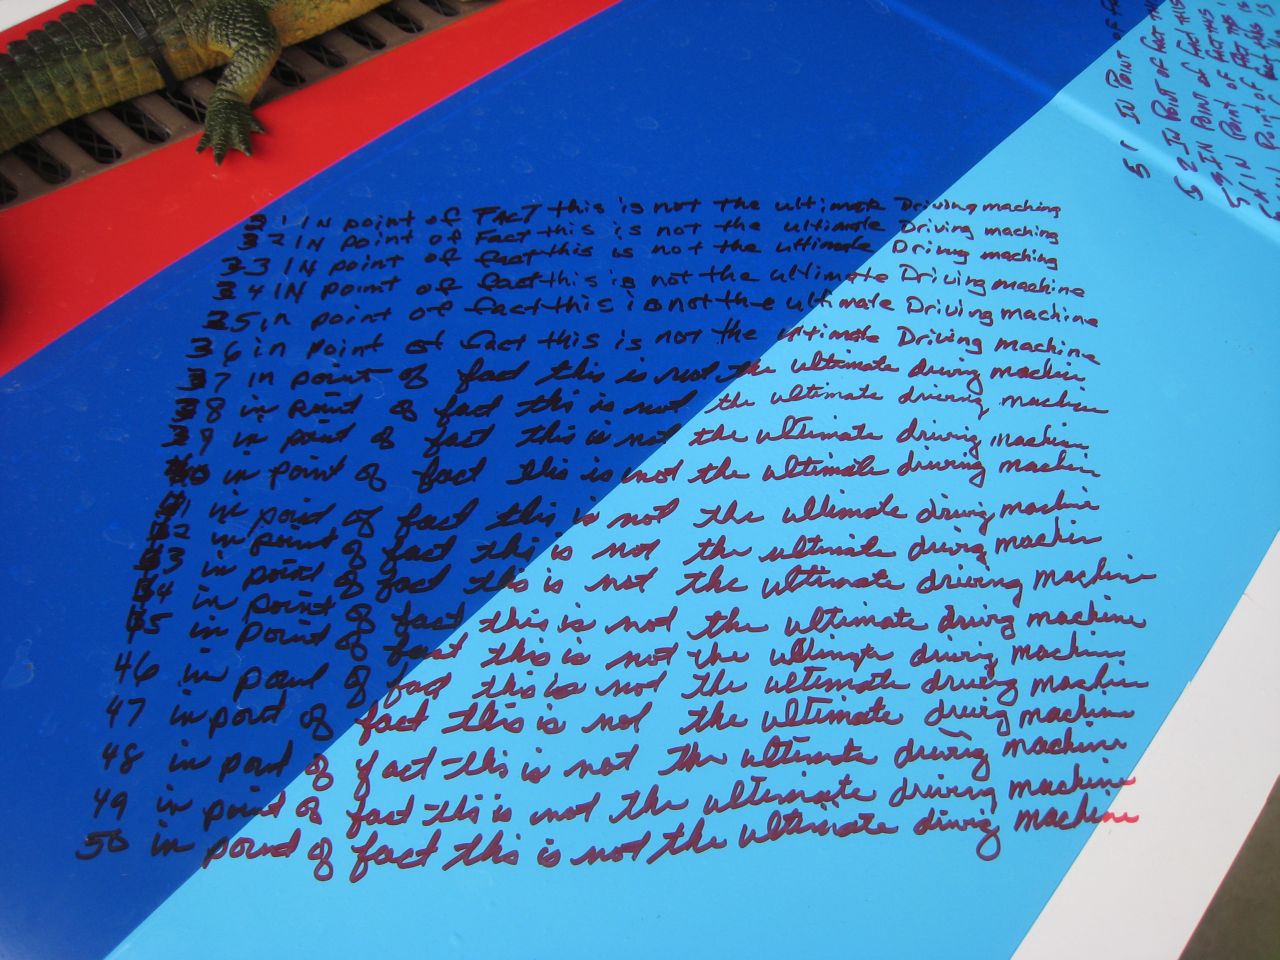 31 IN point of FACT this is not the ultimate Driving maching
32 IN point of Fact this is not the ultimate Driving maching
33 IN point of fact this is not the ultimate Driving maching
34 IN point of fact this is not the ultimate Driving machine
35 in point of fact this is not the ultimate Driving machine
36 in point of fact this is not the ultimate Driving machine
37 in point of fact this is not the ultimate driving machine
38 in point of fact this is not the ultimate driving machine
39 in point of fact this is not the ultimate driving machine
40 in point of fact this is not the ultimate driving machine
41 in point of fact this is not the ultimate driving machine
42 in point of fact this is not the ultimate driving machine
43 in point of fact this is not the ultimate driving machine
44 in point of fact this is not the ultimate driving machine
45 in point of fact this is not the ultimate driving machine
46 in point of fact this is not the ultimate driving machine
47 in point of fact this is not the ultimate driving machine
48 in point of fact this is not the ultimate driving machine
49 in point of fact this is not the ultimate driving machine
50 in point of fact this is not the ultimate driving machine
51 IN POINT OF
52 IN POINT OF FACT
53 IN POINT OF FACT THIS
54 IN POINT OF FACT THIS IS